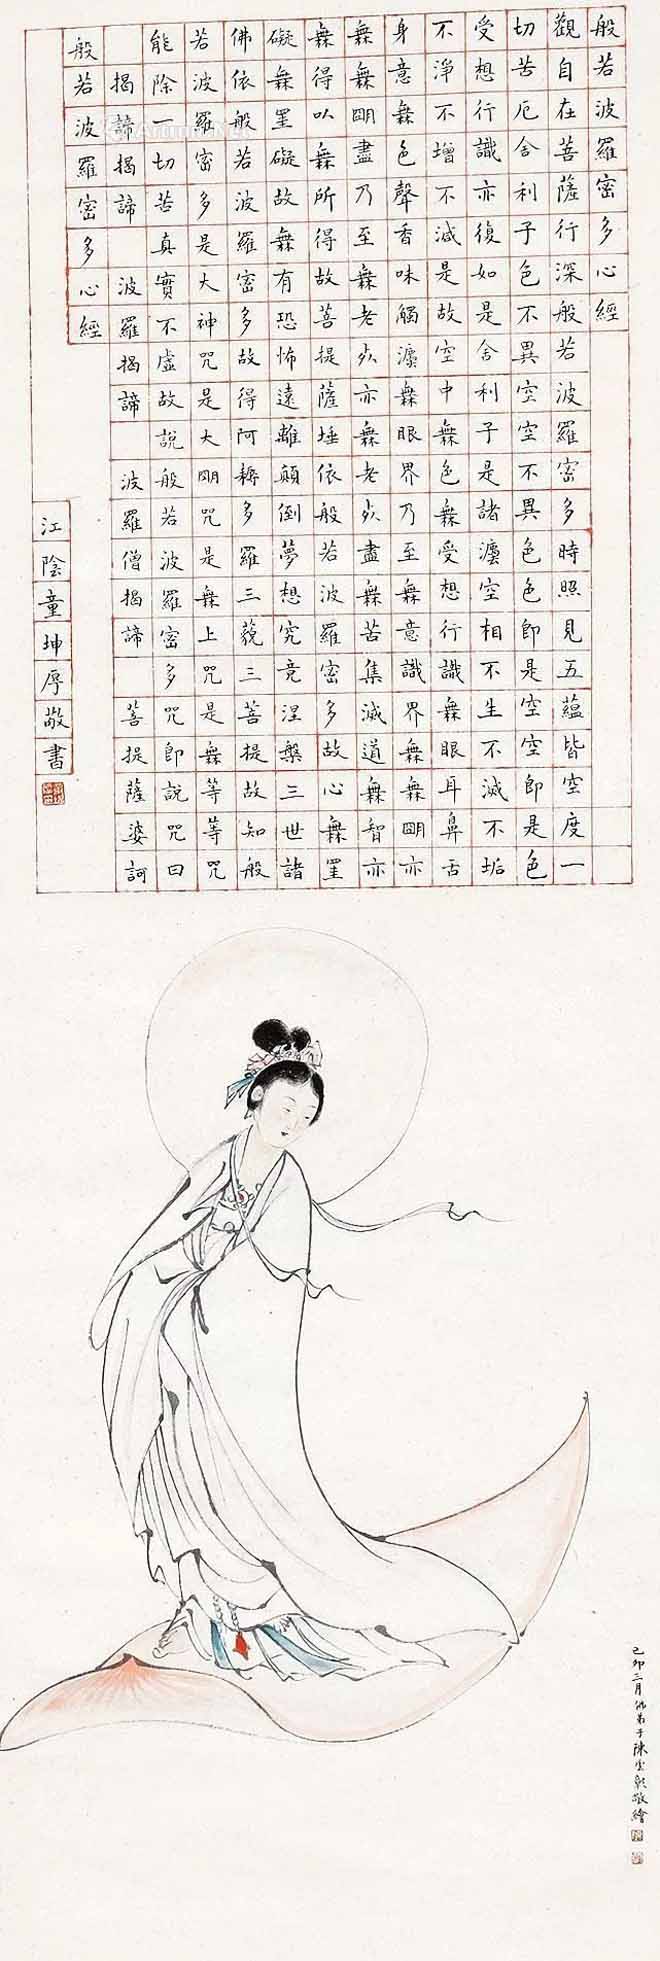 般若波羅密多心經
觀自在菩薩行深般若波羅密多時照見五蘊皆空度一
切苦厄舍利子色不異空空不異色色即是空空即是色
受想行識亦復如是舍利子是諸灋空相不生不滅不垢
不淨不增不減是故空中無色無受想行識無眼耳鼻舌
身意無色聲香味觸灋無眼界乃至無意識界無無明亦
無無明盡乃至無老死亦無老死盡無苦集滅道無智亦
無得以無所得故菩提薩埵依般若波羅密多故心無罣
礙無罣礙故無有恐怖遠離顛倒夢想究竟涅槃三世諸
佛依般若波羅密多故得阿耨多羅三藐三菩提故知般
若波羅密多是大神咒是大明咒是無上咒是無等等咒
能除一切苦真實不虛故說般若波羅密多咒即說咒曰
揭諦揭諦 波羅揭諦 波羅僧揭諦 菩提薩婆訶
般若波羅密多心經
江陰童坤厚敬書
己卯三月佛弟子陳雲彰敬繪